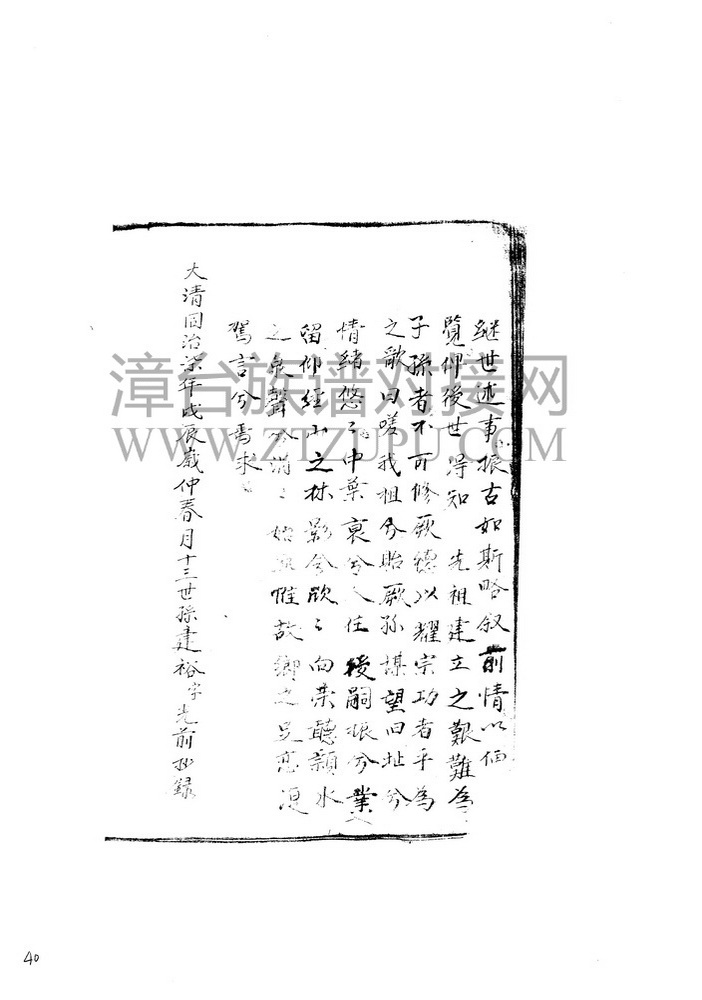 继世述事振古如斯略叙前情以俻
覽仰後世得知 先祖建立之艱難為
子孫者不可修厥德以耀宗功者乎為
之歌曰嗟我祖兮貽厥孫謀望旧址兮
情緒悠〻中葉衷兮人往後嗣振兮業
留仰經山之林影兮欣〻向荣聽潁水
之泉聲兮涓〻始 惟故鄉之是恋
駕言兮焉求
大清同治柒年戊辰歲仲春月十三世孫建裕字先前抄録
漳台族谱对接网
WWW.ZTZUPU.COM
40